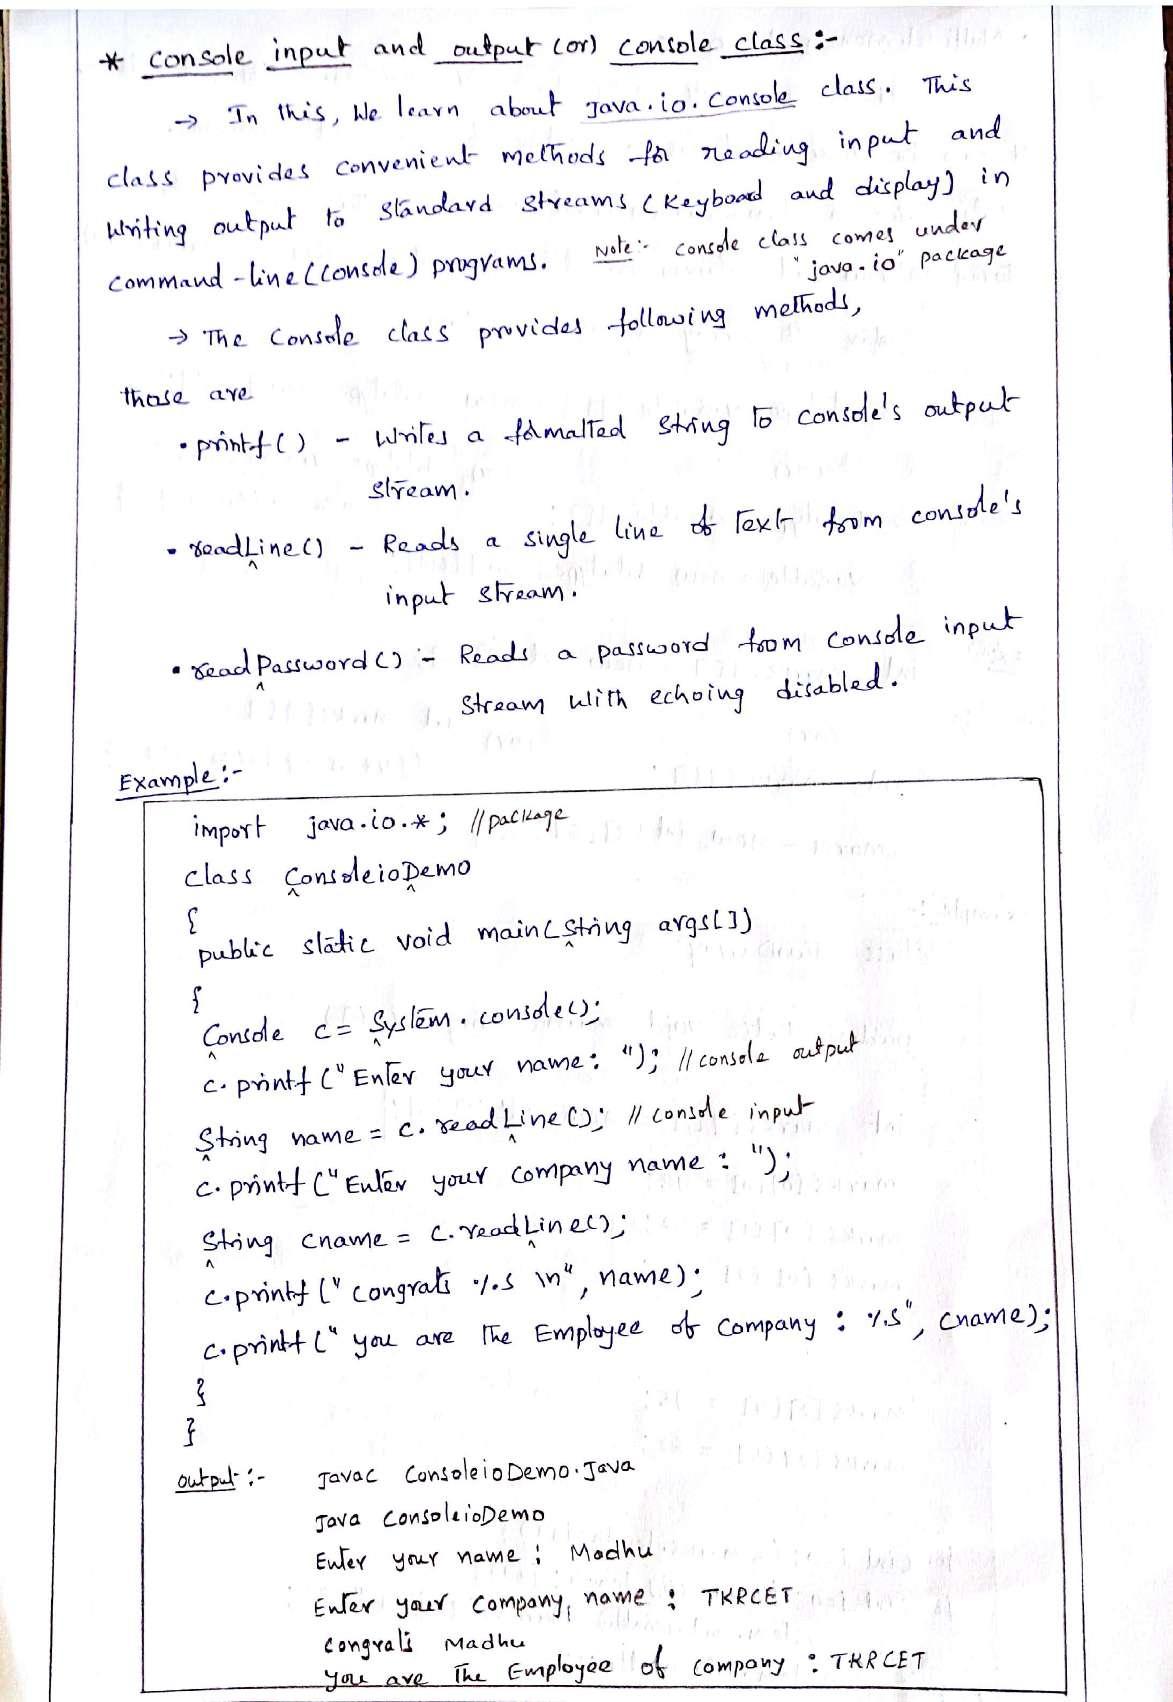 * console input and output (or) console class :-
→ In this, We learn about Java.io.Console class. This
class provides convenient methods for reading input and
Writing output to standard streams (Keyboard and display) in
command-line (Console) programs. Note:- console class comes under
"java.io" package
→ The Console class provides following methods,
those are
• printf() - Writes a formatted String to console's output
stream.
• readLine() - Reads a single line of Text from console's
input stream.
• readPassword() :- Reads a password from console input
Stream with echoing disabled.
Example:-
import java.io.*; //package
class ConsoleioDemo
{
public static void main(String args[])
{
Console c = System.console();
c.printf("Enter your name: "); // console output
String name = c.readLine(); // console input
c.printf("Enter your company name : ");
String cname = c.readLine();
c.printf("congrats %s \n", name);
c.printf("you are the Employee of company : %s", cname);
}
}
output:- Javac ConsoleioDemo.Java
Java ConsoleioDemo
Enter your name : Madhu
Enter your company, name : TKRCET
congrats Madhu
you are The Employee of company : TKRCET